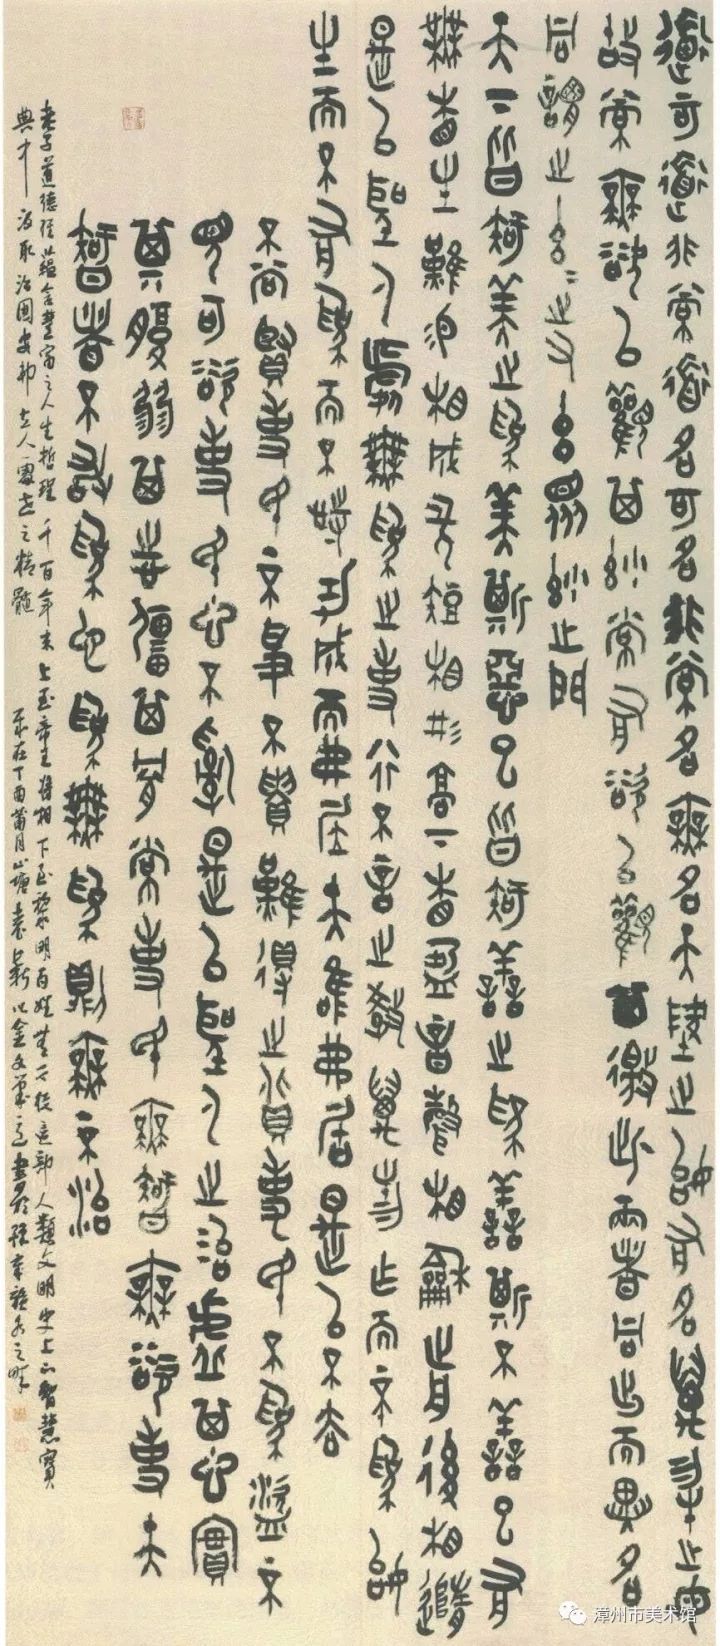 道可道非常道名可名非常名無名天地之始有名萬物之母
故常無欲以觀其妙常有欲以觀其徼此兩者同出而異名
同謂之玄玄之又玄眾妙之門
天下皆知美之為美斯惡已皆知善之為善斯不善已有
無相生難易相成長短相形高下相盈音聲相和前後相隨
是以聖人處無為之事行不言之教萬物作而不為始
生而不有為而不恃功成而弗居夫唯弗居是以不去
不尚賢使民不爭不貴難得之貨使民不為盜不
見可欲使民心不亂是以聖人之治虛其心實
其腹弱其志強其骨常使民無知無欲使夫
智者不敢為也為無為則無不治
老子道德經蘊含豐富之人生哲理千百年來上至帝王將相下至黎明百姓無不從這部人類文明史上的智慧寶
典中汲取治國安邦立人處世之精髓 歲在丁酉蒲月山塘袁新以金文筆意書於
漳州市美术馆